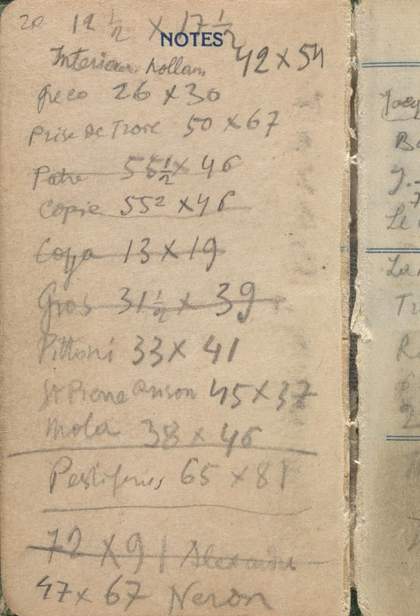 20 12 1/2 X 17 1/2
NOTES
Interieur hollan 42 x 54
Greco 26 x 30
Prise de Troie 50 x 67
Patre 55 1/2 x 46
Copie 55² x 46
Goya 13 x 19
Gros 31 1/2 x 39
Pittoni 33 x 41
St Pierre prison 45 x 37
Mola 38 x 46
Pestiferes 65 x 81
72 x 91 Alexandre
47 x 67 Neron
Le
La
T
R